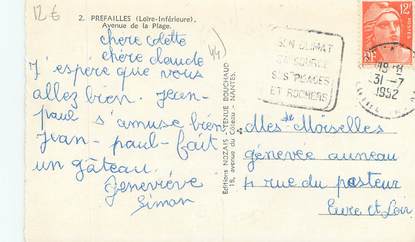 12€
2. PREFAILLES (Loire-Inférieure).
Avenue de la Plage.
chère colette
chère claude
44)
J'espère que vous
allez bien. Jean-
paul s'amuse bien
Jean-paul-fait
un gâteau.
Geneviève
Simon
Editions NOZAIS - VENUE BOUCHAUD
18, avenue du Côteau - NANTES.
SON CLIMAT
SA SOURCE
SES PLAGES
ET ROCHERS
12F
RF
19 H
31-7
1952
Mesdemoiselles
génevée auneau
4 rue du pasteur
Eure et Loir